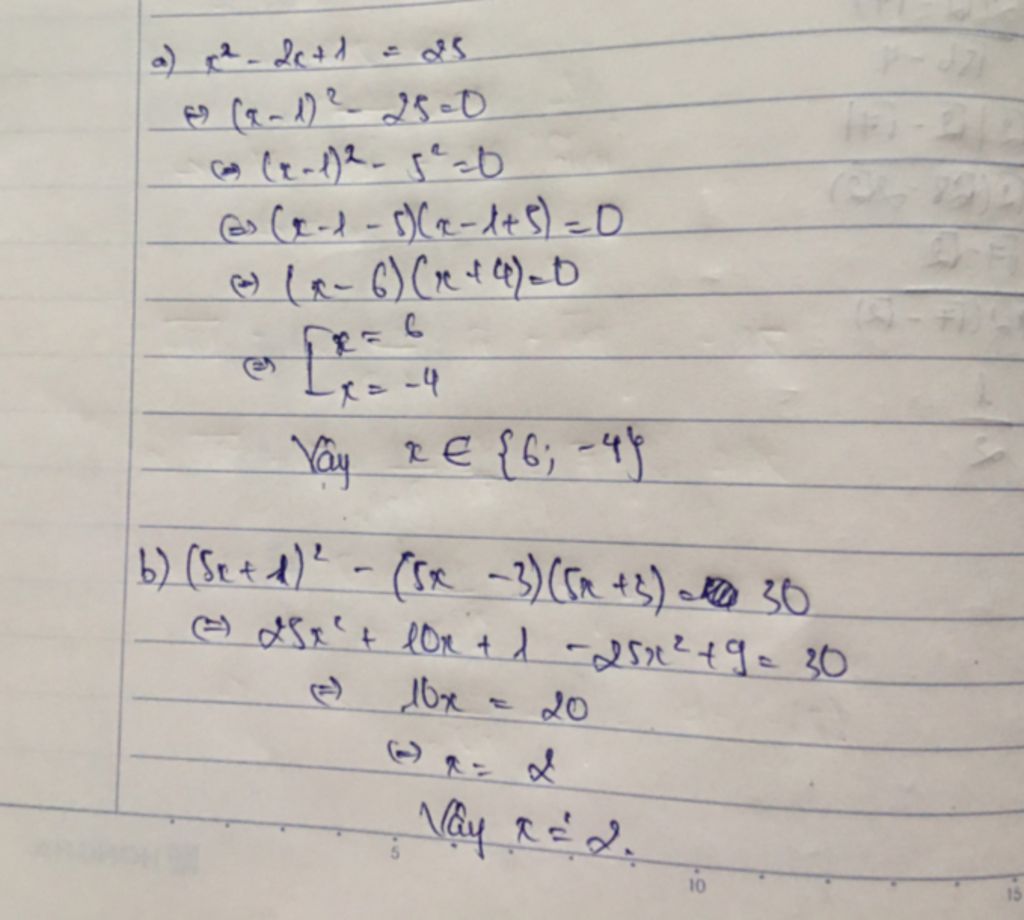 a) x² - 2x + 1 = 25
⇔ (x - 1)² - 25 = 0
⇔ (x - 1)² - 5² = 0
⇔ (x - 1 - 5)(x - 1 + 5) = 0
⇔ (x - 6)(x + 4) = 0
⇔ [ x = 6
x = -4
Vậy x ∈ {6; -4}
b) (5x + 1)² - (5x - 3)(5x + 3) = 30
⇔ 25x² + 10x + 1 - 25x² + 9 = 30
⇔ 10x = 20
⇔ x = 2
Vậy x = 2.
5 10 15